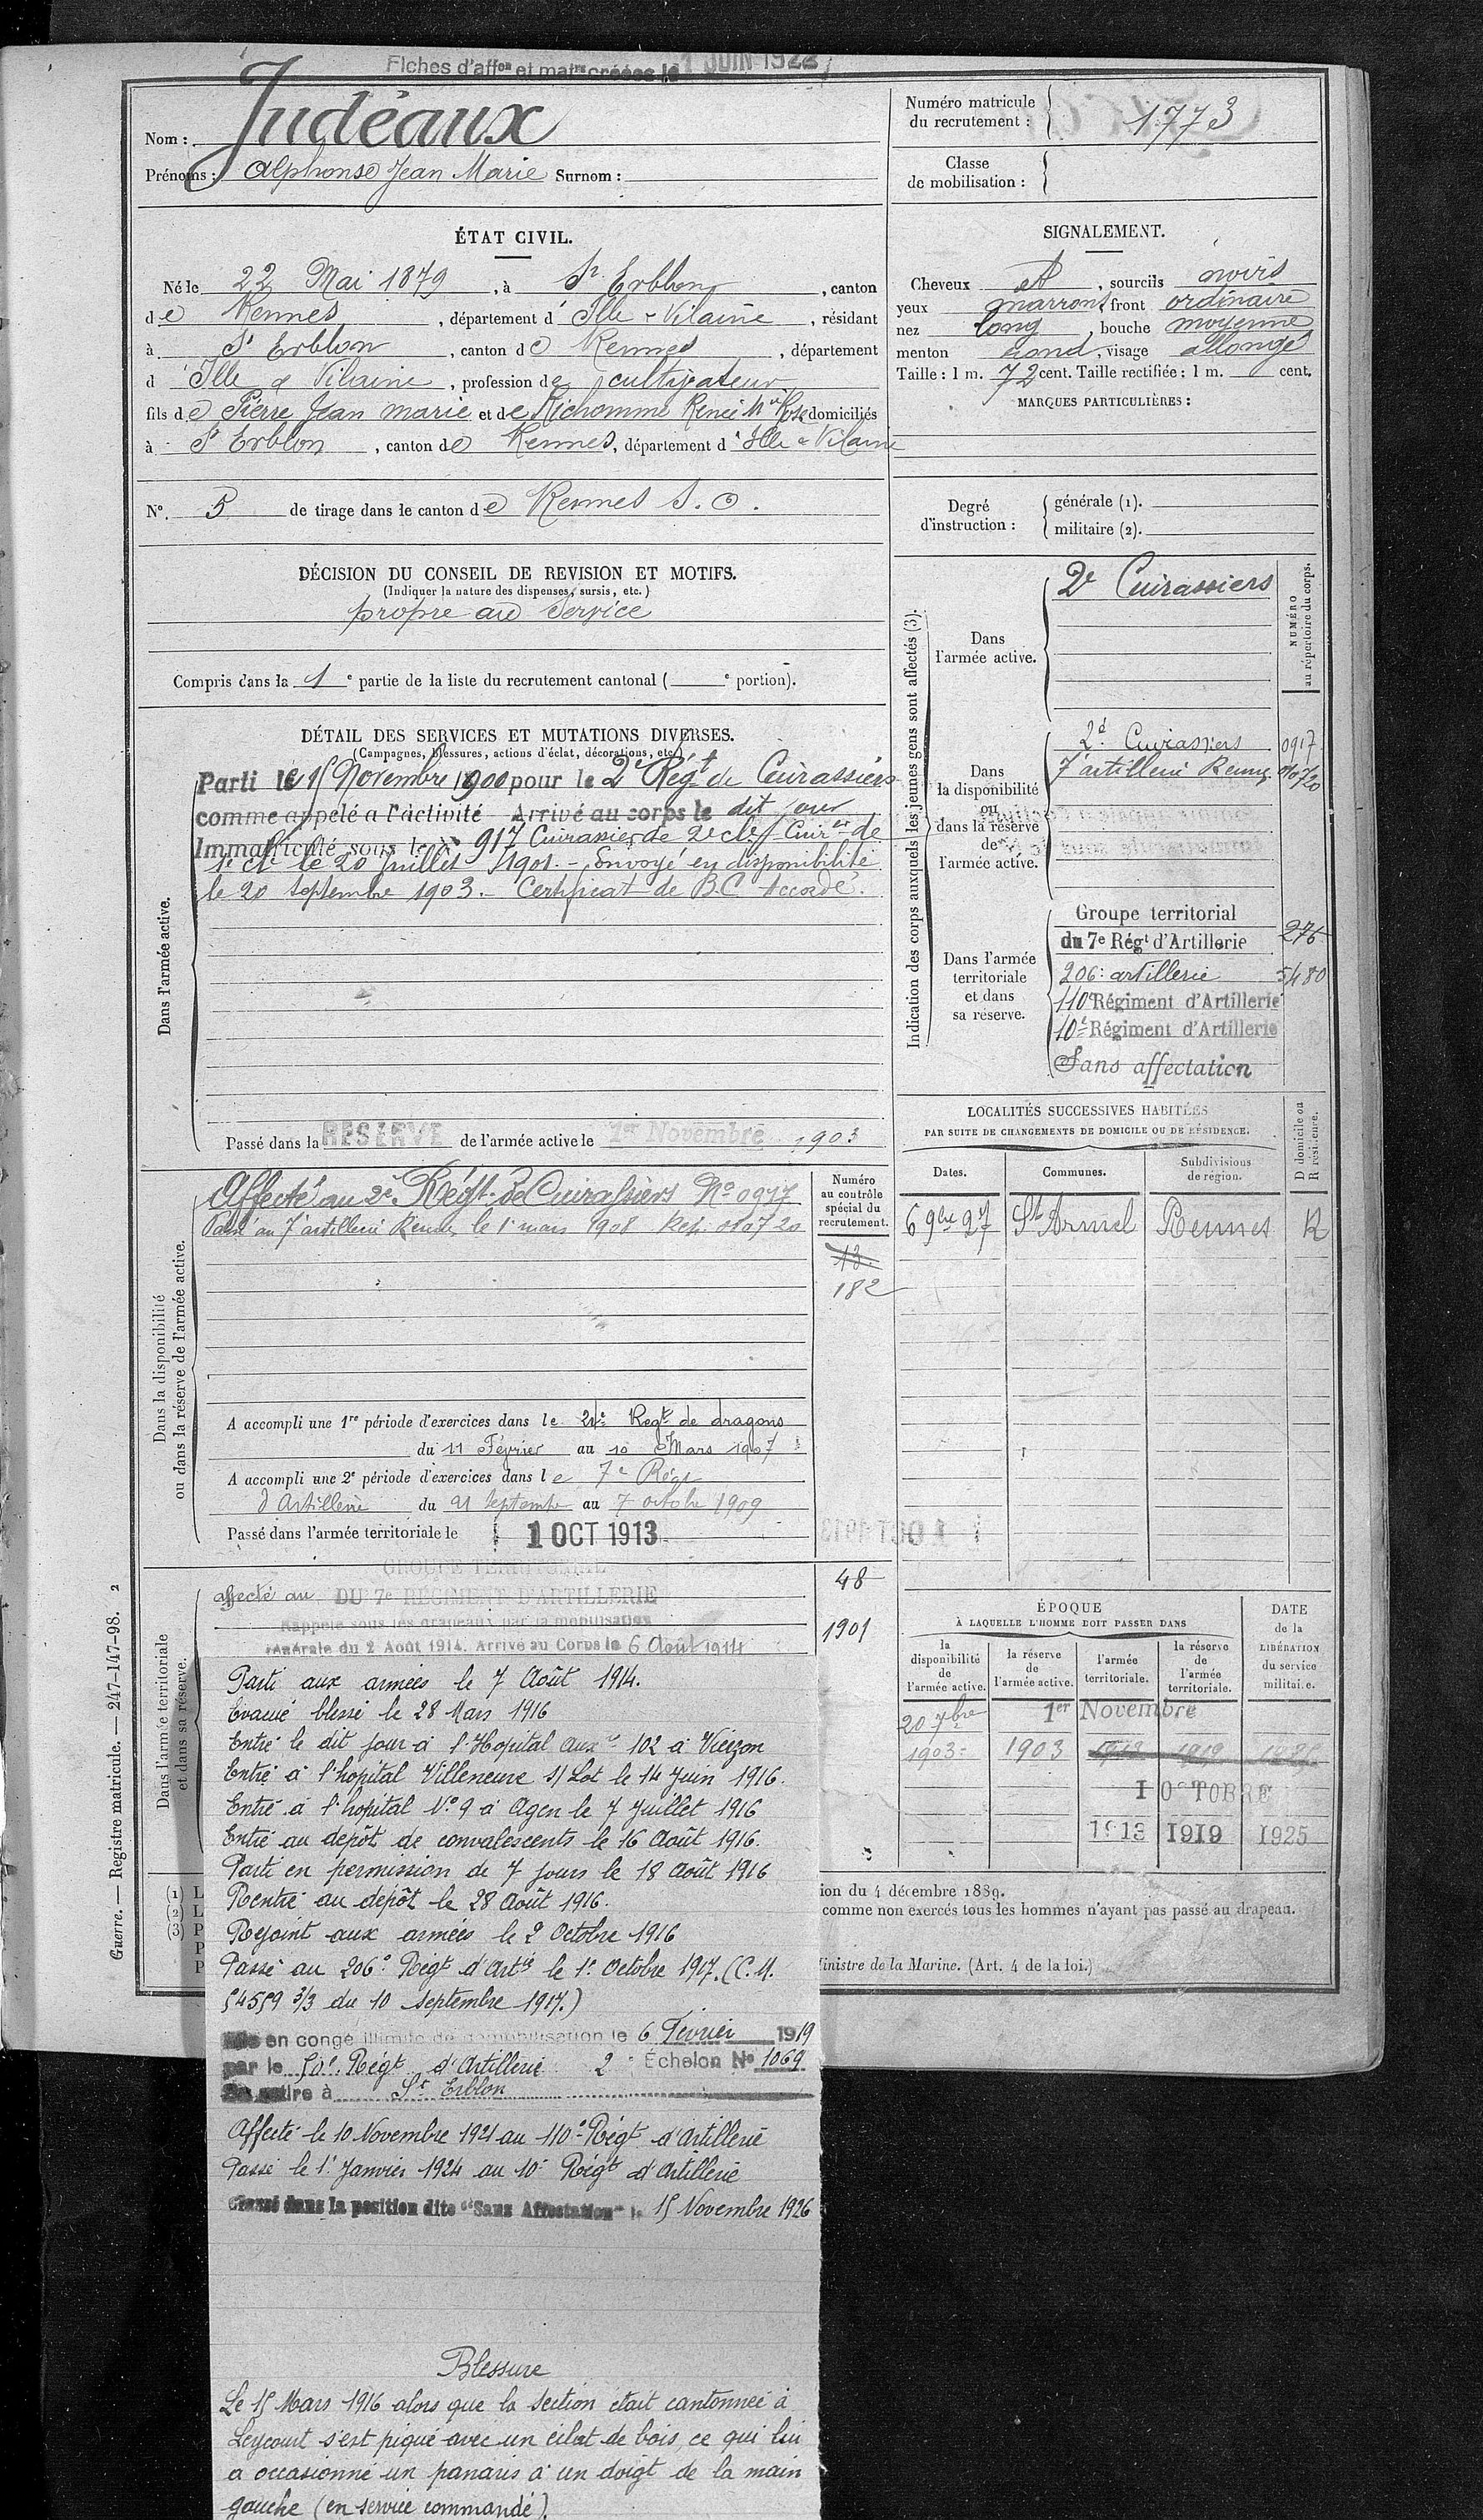 Fiches d'affon et matre créées le 1 JUIN 1922
Nom : Judéaux
Prénoms : Alphonse Jean Marie Surnom :
Numéro matricule du recrutement : 1773
Classe de mobilisation :
ÉTAT CIVIL.
Né le 22 Mai 1879, à St Erblon, canton
de Rennes, département d'Ille & Vilaine, résidant
à St Erblon, canton de Rennes, département
d Ille & Vilaine, profession de cultivateur
fils de Pierre Jean marie et de Richomme Renée Mie Rose domiciliés
à St Erblon, canton de Rennes, département d'Ille & Vilaine
SIGNALEMENT.
Cheveux et, sourcils noirs
yeux marrons, front ordinaire
nez long, bouche moyenne
menton rond, visage allongé
Taille : 1 m. 72 cent. Taille rectifiée : 1 m. cent.
MARQUES PARTICULIÈRES :
N°. 5 de tirage dans le canton de Rennes S.O.
Degré d'instruction : générale (1).
militaire (2).
DÉCISION DU CONSEIL DE REVISION ET MOTIFS.
(Indiquer la nature des dispenses, sursis, etc.)
propre au service
Compris dans la 1e partie de la liste du recrutement cantonal ( e portion).
DÉTAIL DES SERVICES ET MUTATIONS DIVERSES.
(Campagnes, blessures, actions d'éclat, décorations, etc.)
Dans l'armée active.
Parti le 15 Novembre 1900 pour le 2e Régt de Cuirassiers
comme appelé a l'activité Arrivé au corps le dit jour
Immatriculé sous le n° 917 Cuirassier de 2e cl. Cuirer de
1e cl. le 20 Juillet 1901. - Envoyé en disponibilité
le 20 septembre 1903. - Certificat de B.C. Accordé.
Passé dans la RÉSERVE de l'armée active le 1er Novembre 1903
Indication des corps auxquels les jeunes gens sont affectés (3).
NUMÉRO au répertoire du corps.
Dans l'armée active.
2e Cuirassiers
Dans la disponibilité ou dans la réserve de l'armée active.
2d Cuirassiers 0917
7e artillerie Rennes 010720
Dans l'armée territoriale et dans sa réserve.
Groupe territorial
du 7e Régt d'Artillerie 276
206e artillerie 5480
110e Régiment d'Artillerie
10e Régiment d'Artillerie
Sans affectation
LOCALITÉS SUCCESSIVES HABITÉES
PAR SUITE DE CHANGEMENTS DE DOMICILE OU DE RÉSIDENCE.
D domicile ou R résidence.
Dates. Communes. Subdivisions de région.
6 9bre 27 St Armel Rennes R
Dans la disponibilité ou dans la réserve de l'armée active.
Affecté au 2e Régt de Cuirassiers No 0917
Passé au 7e artillerie Rennes le 1er mars 1908 Rép. 010720
Numéro au contrôle spécial du recrutement.
13
182
A accompli une 1re période d'exercices dans le 24e Regt de dragons
du 11 Février au 10 Mars 1907
A accompli une 2e période d'exercices dans le 7e Régt
d'Artillerie du 21 septembre au 7 octobre 1909
Passé dans l'armée territoriale le 1 OCT 1913
Dans l'armée territoriale et dans sa réserve.
GROUPE TERRITORIAL
affecté au DU 7e RÉGIMENT D'ARTILLERIE
48
Rappelé sous les drapeaux par la mobilisation
générale du 2 Août 1914. Arrivé au Corps le 6 Août 1914
1901
Parti aux armées le 7 Août 1914.
Evacué blessé le 28 Mars 1916
Entré le dit jour à l'Hopital auxre 102 à Vierzon
Entré à l'hopital Villeneuve s/ Lot le 14 Juin 1916.
Entré à l'hopital N°9 à Agen le 7 Juillet 1916
Entré au dépôt de convalescents le 16 Août 1916.
Parti en permission de 7 jours le 18 Août 1916
Rentré au dépôt le 28 Août 1916.
Rejoint aux armées le 2 Octobre 1916
Passé au 206e Régt d'Artie le 1er Octobre 1917. (C.M.
54559 3/3 du 10 septembre 1917.)
en congé illimité de démobilisation le 6 Février 1919
par le 50e Régt d'Artillerie 2e Echelon No 1069
Se retire à St Erblon
Affecté le 10 Novembre 1921 au 110e Régt d'Artillerie
Passé le 1er Janvier 1924 au 10e Régt d'Artillerie
Classé dans la position dite "Sans Affectation" le 15 Novembre 1926
Blessure
Le 15 Mars 1916 alors que la section était cantonnée à
Leycourt s'est piqué avec un éclat de bois, ce qui lui
a occasionné un panaris à un doigt de la main
gauche (en service commandé).
ÉPOQUE
À LAQUELLE L'HOMME DOIT PASSER DANS
DATE de la LIBÉRATION du service militaire.
la disponibilité de l'armée active. la réserve de l'armée active. l'armée territoriale. la réserve de l'armée territoriale.
20 7bre 1er Novembre
1903 1903 1913 1919
1 OCTOBRE
1913 1919 1925
(1) L
(2) L
(3) P
P
P
ion du 4 décembre 1889.
comme non exercés tous les hommes n'ayant pas passé au drapeau.
Ministre de la Marine. (Art. 4 de la loi.)
Guerre. — Registre matricule. — 247-147-98. 2